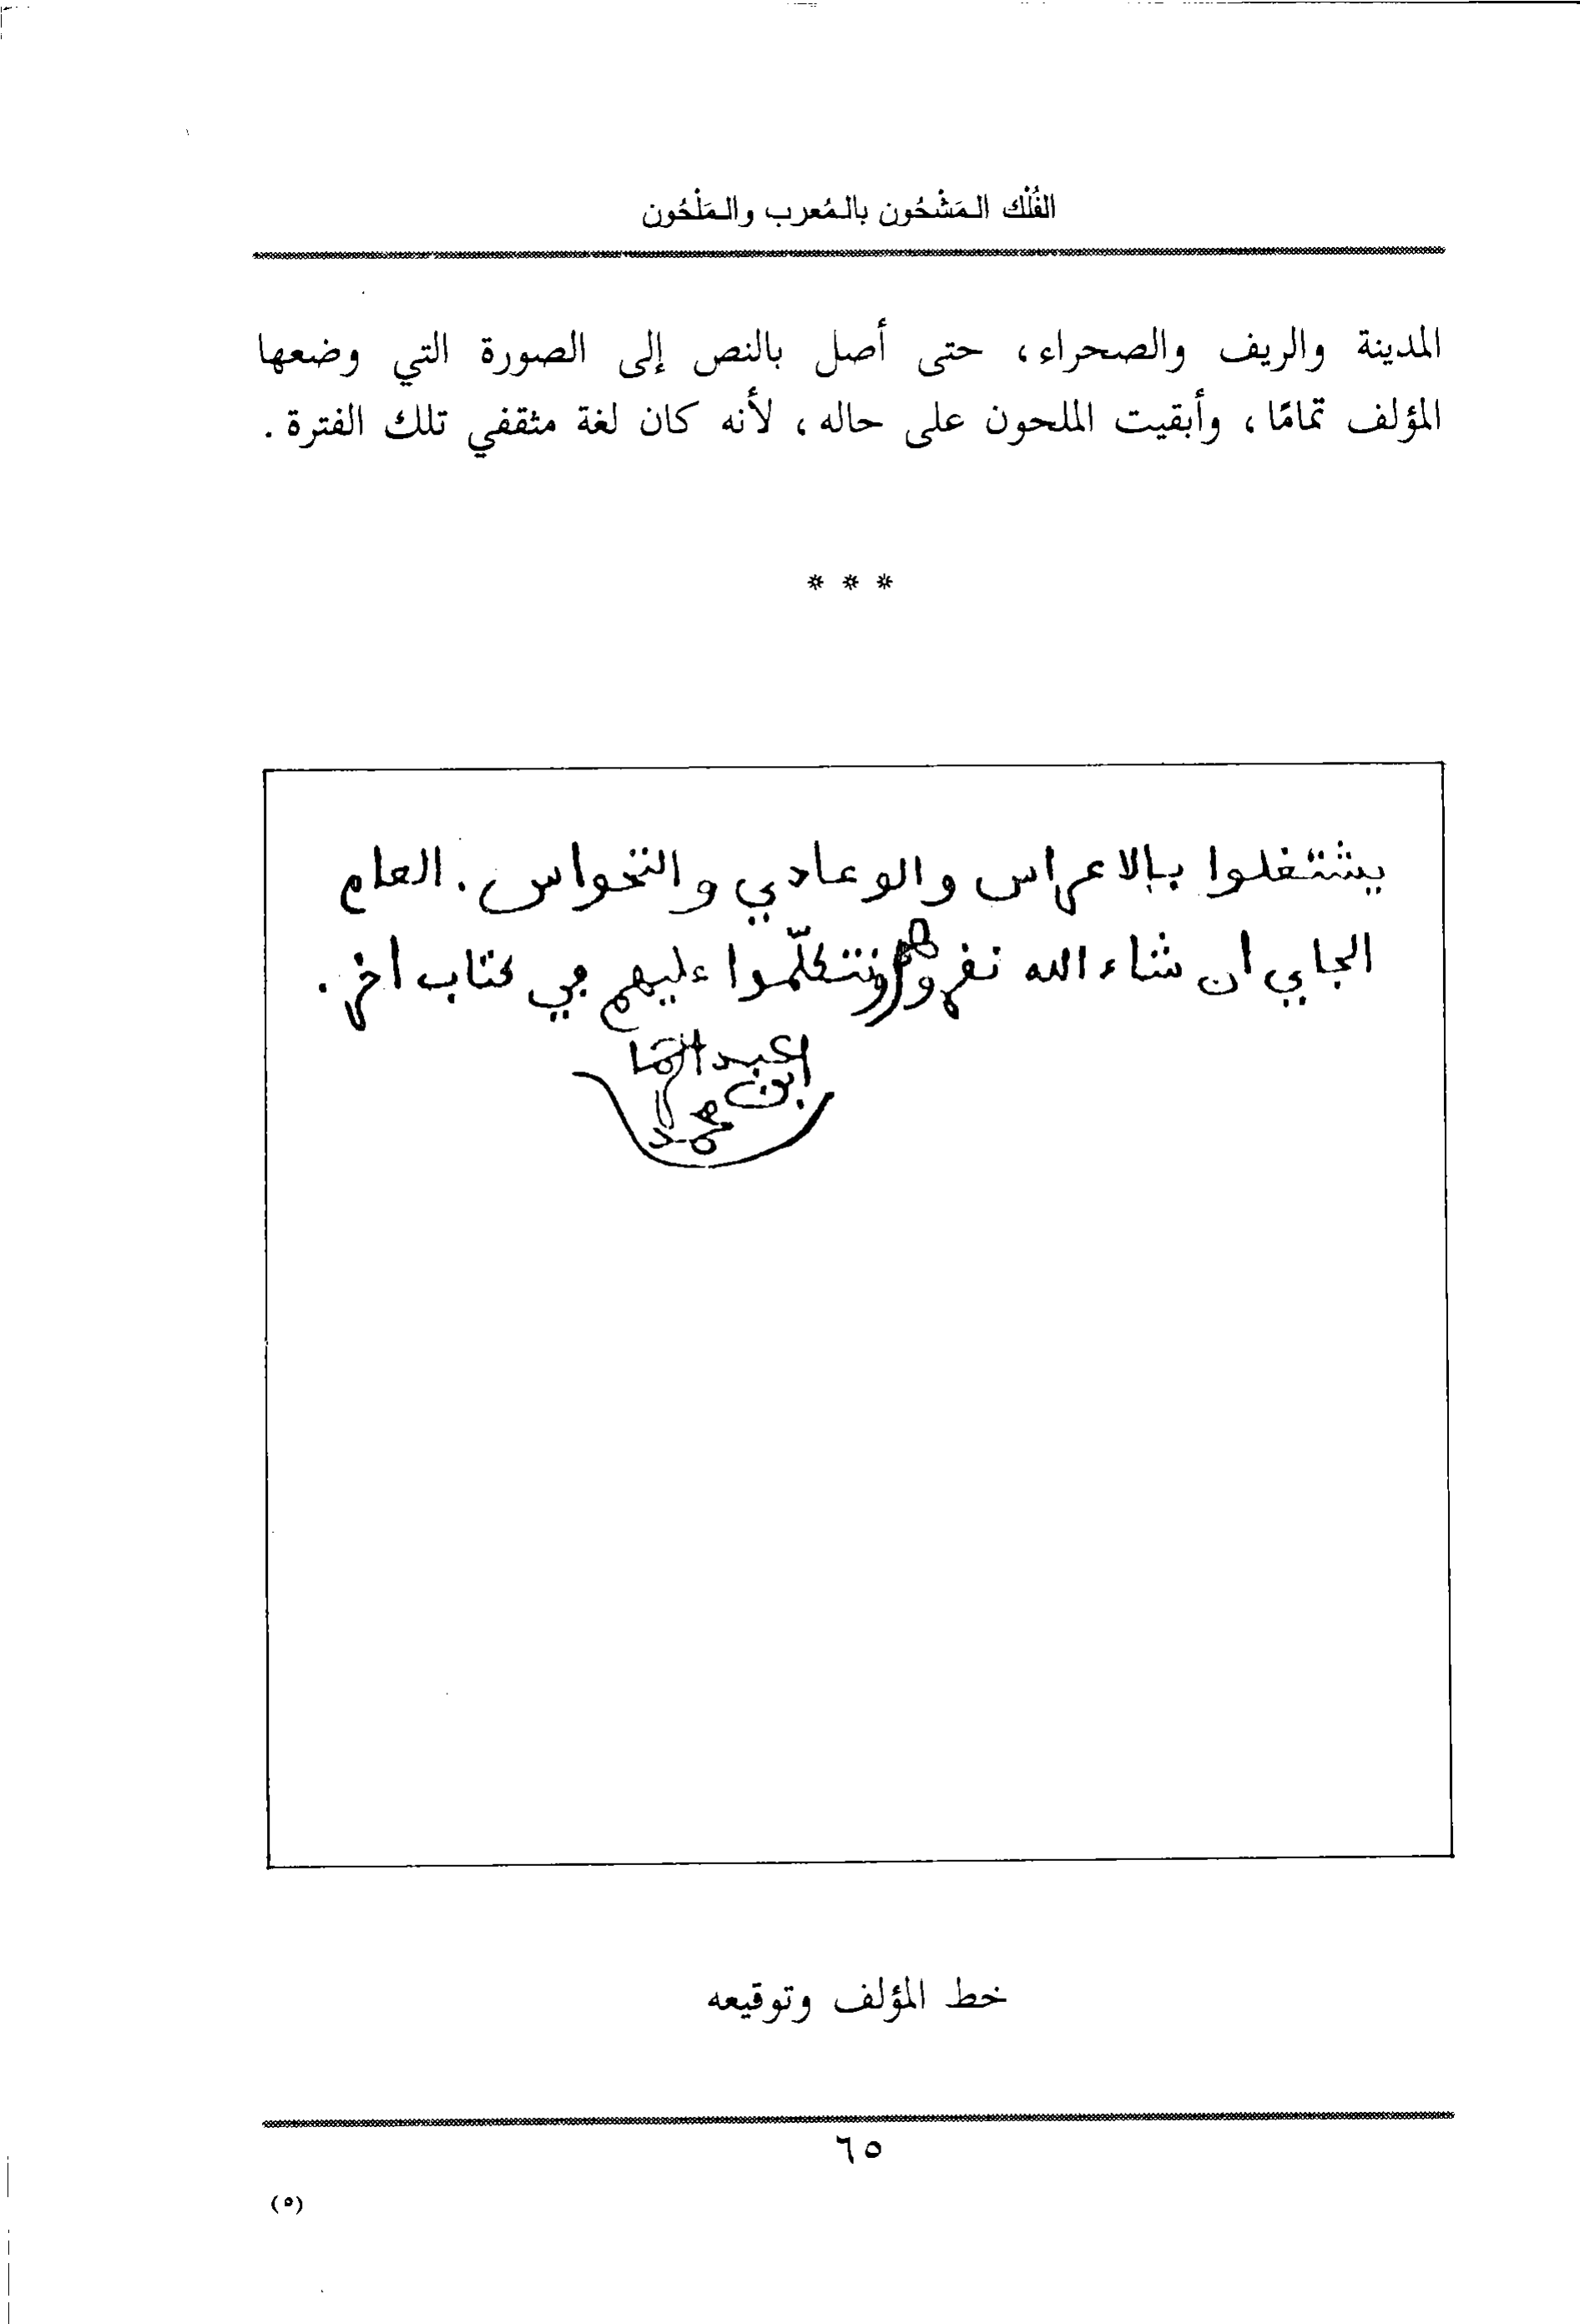 الفُلْك الـمَشْحُون بالـمُعرب والـمَلْحُون
المدينة والريف والصحراء، حتى أصل بالنص إلى الصورة التي وضعها
المؤلف تمامًا، وأبقيت الملحون على حاله، لأنه كان لغة مثقفي تلك الفترة.
* * *
يشتغلوا بالاعراس والوعادي والتحواس. العام
الجاي ان شاء الله نفروهم ونتكلّموا عليهم في كتاب اخر.
عبد
ابن
محمد
خط المؤلف وتوقيعه
٦٥
(٥)